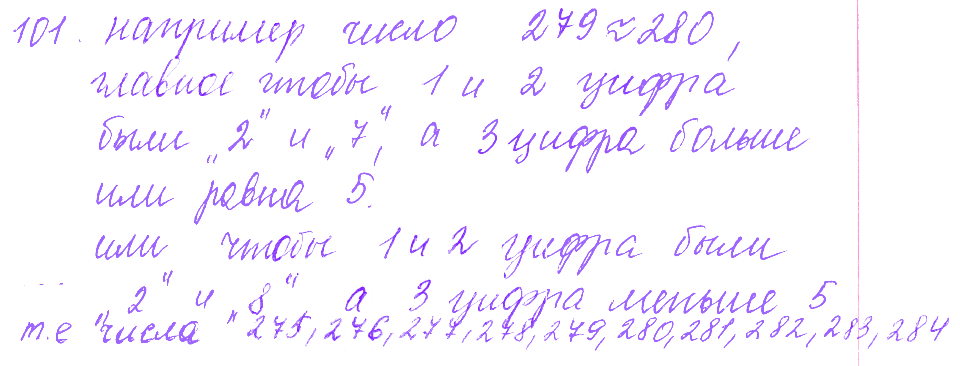 101. например число 279≈280,
главное чтобы 1 и 2 цифра
были „2" и „7", а 3 цифра больше
или равна 5.
или чтобы 1 и 2 цифра были
„2" и „8" а 3 цифра меньше 5
т.е числа 275, 276, 277, 278, 279, 280, 281, 282, 283, 284